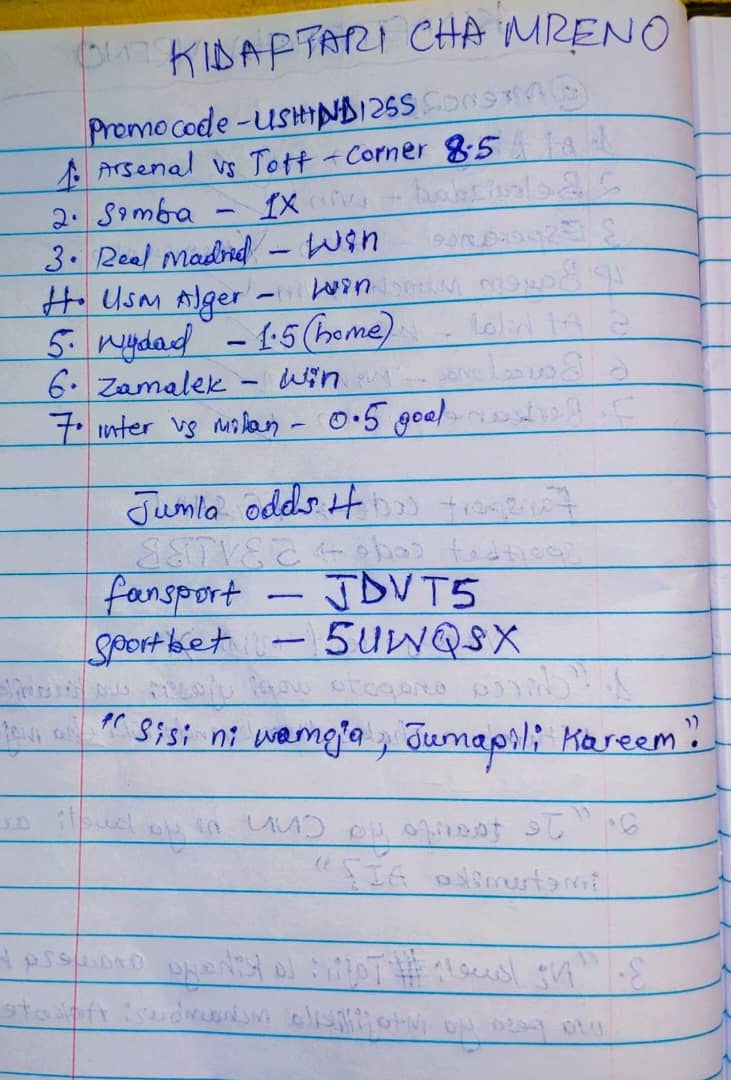 KIDAFTARI CHA MRENO
Promocode - USHINDI255
1. Arsenal vs Tott - Corner 8.5
2. Simba - 1X
3. Real Madrid - Win
4. USM Alger - Win
5. Wydad - 1.5 (home)
6. Zamalek - Win
7. inter vs Milan - 0.5 goal
Jumla odds 4
fansport - JDVT5
Sportbet - 5UWQSX
"Sisi ni wamoja, Jumapili Kareem".